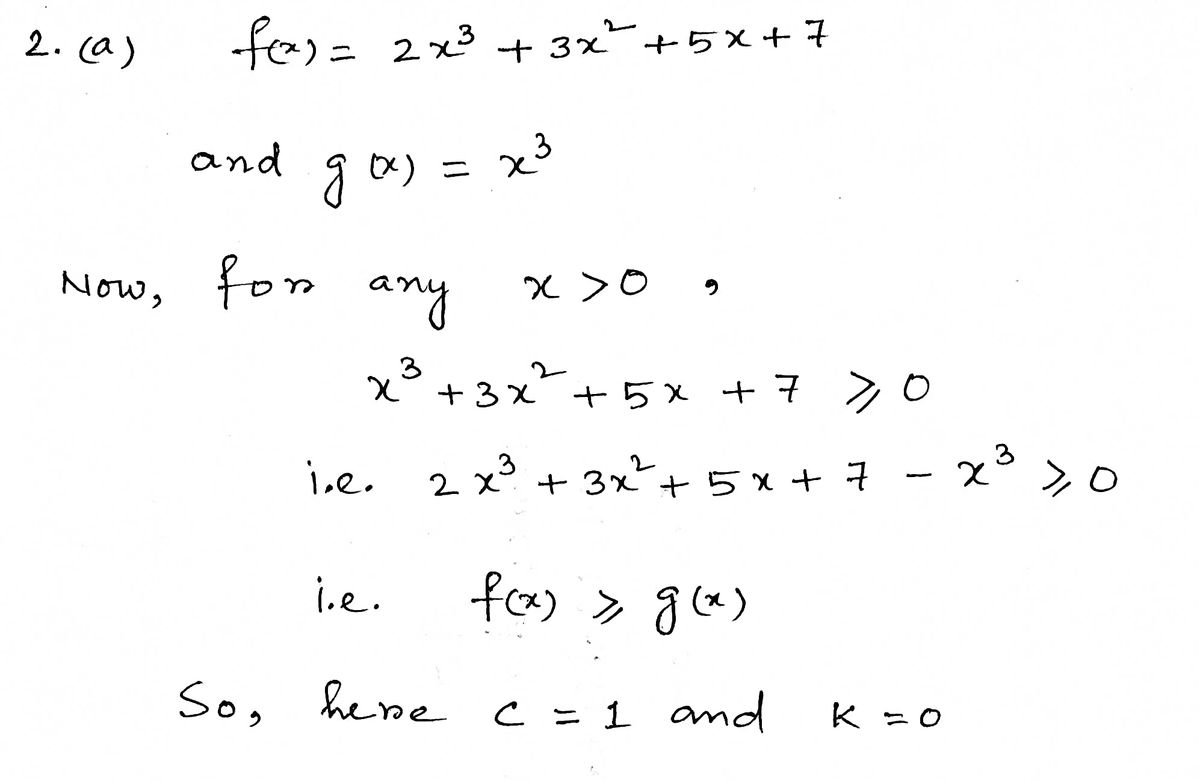 2. (a) f(x) = 2x³ + 3x² + 5x + 7
and g(x) = x³
Now, for any x > 0 ,
x³ + 3x² + 5x + 7 ⩾ 0
i.e. 2x³ + 3x² + 5x + 7 - x³ ⩾ 0
i.e. f(x) ⩾ g(x)
So, here c = 1 and K = 0